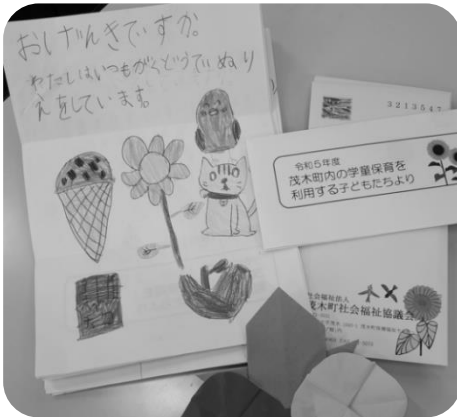 おげんきですか。
わたしはいつもがくどうでぬり
えをしています。
3213547
令和5年度
茂木町内の学童保育を
利用する子どもたちより
社会福祉法人
茂木町社会福祉協議会